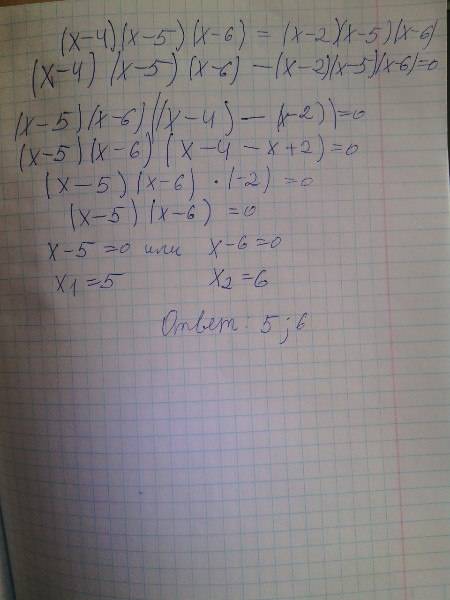 (x-4)(x-5)(x-6) = (x-2)(x-5)(x-6)
(x-4) (x-5) (x-6) - (x-2)(x-5)(x-6)=0
(x-5)(x-6)((x-4) - (x-2))=0
(x-5)(x-6) (x-4-x+2)=0
(x-5)(x-6)·(-2)=0
(x-5)(x-6)=0
x-5=0 или x-6=0
x₁=5 x₂=6
Ответ: 5;6